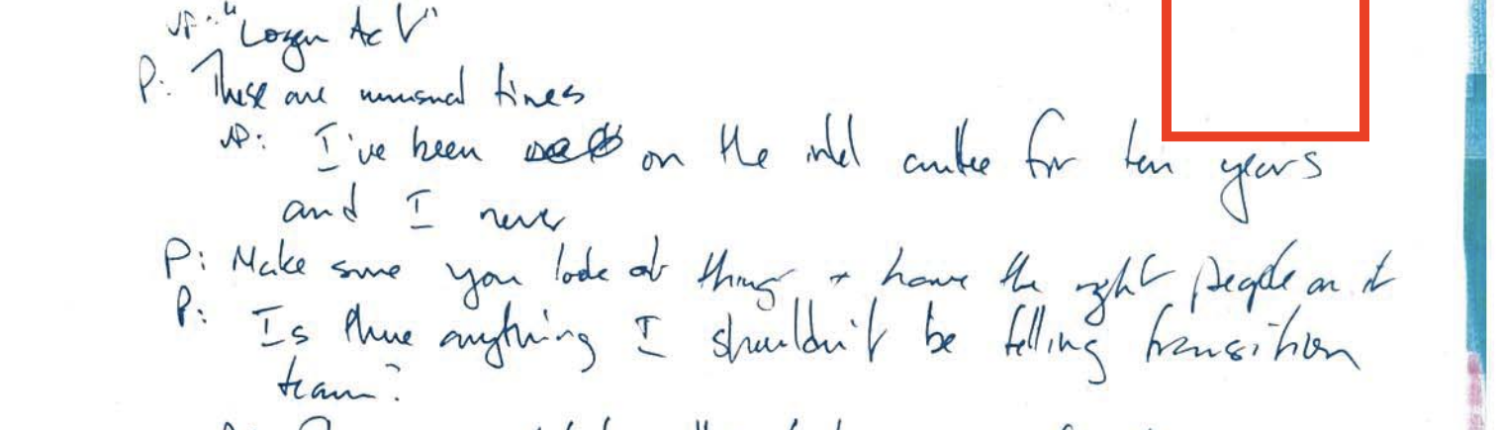 VP: "Logan Act"
P: These are unusual times
VP: I've been on the intel cmtee for ten years
and I never
P: Make sure you look at things + have the right people on it
P: Is there anything I shouldn't be telling transition
team?